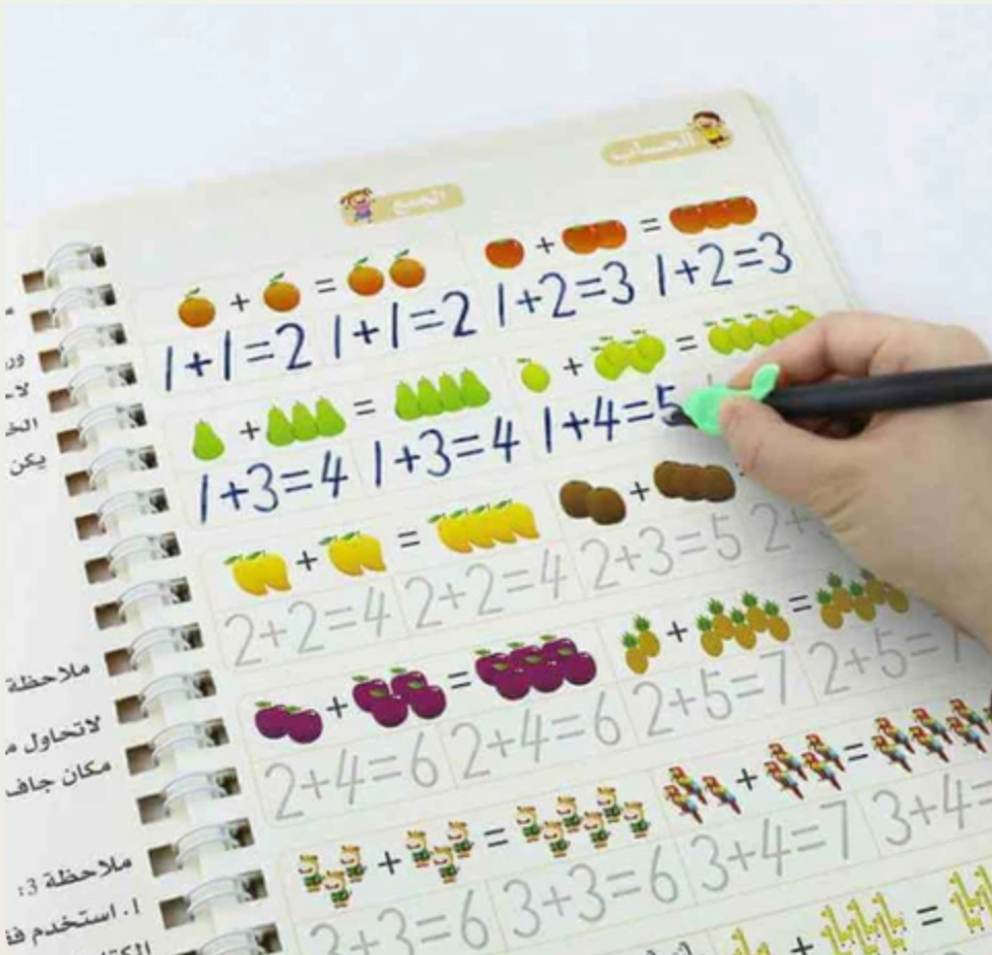 الحساب
الجمع
+ = + =
1+1=2 1+1=2 1+2=3 1+2=3
+ = + =
1+3=4 1+3=4 1+4=5
+ = +
2+2=4 2+2=4 2+3=5 2+
+ = + =
2+4=6 2+4=6 2+5=7 2+5=7
+ = + =
3+3=6 3+3=6 3+4=7 3+4=
+ =
يكن
ملاحظة
لاتحاول
مكان جاف
ملاحظة 3:
1. استخدم